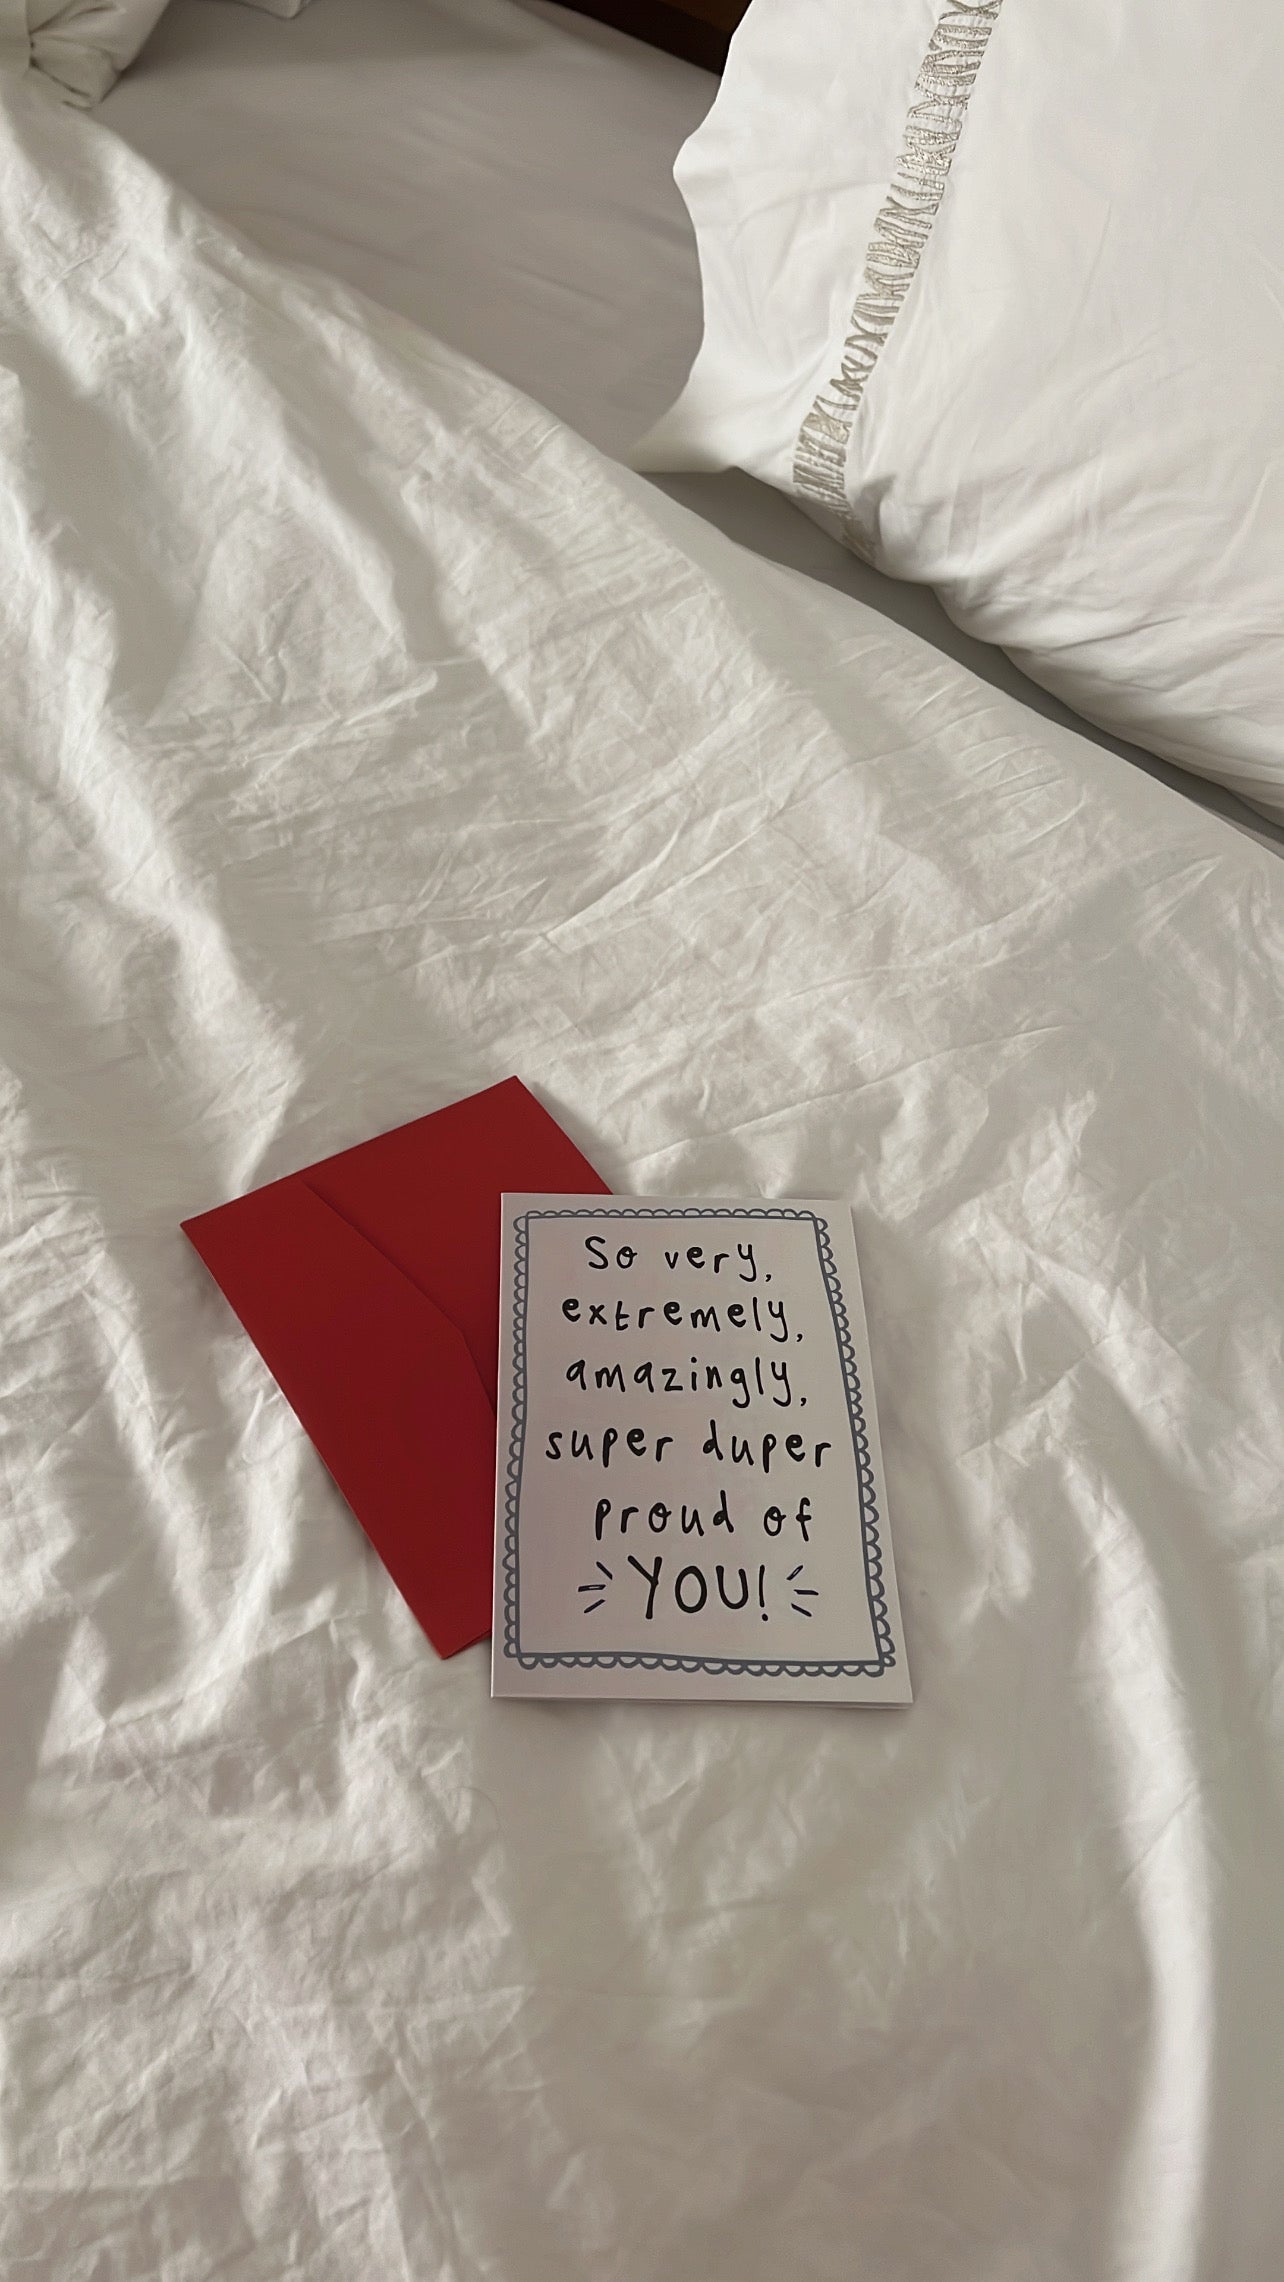 So very,
extremely,
amazingly,
super duper
proud of
YOU!